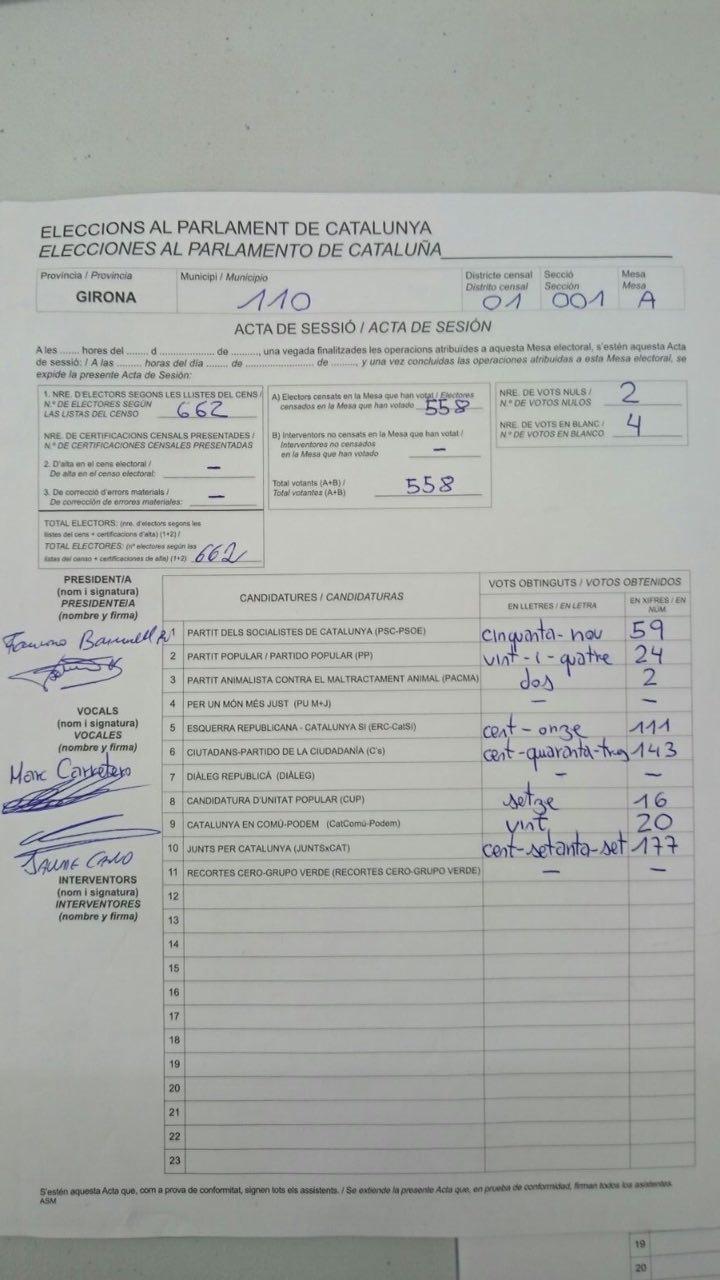 ELECCIONS AL PARLAMENT DE CATALUNYA
ELECCIONES AL PARLAMENTO DE CATALUÑA
Província / Provincia
GIRONA
Municipi / Municipio
110
Districte censal
Distrito censal
01
Secció
Sección
001
Mesa
Mesa
A
ACTA DE SESSIÓ / ACTA DE SESIÓN
A les ....... hores del ........ d ...................... de ........., una vegada finalitzades les operacions atribuïdes a aquesta Mesa electoral, s'estén aquesta Acta
de sessió: / A las ........ horas del día ........ de ...................... de ........, y una vez concluidas las operaciones atribuidas a esta Mesa electoral, se
expide la presente Acta de Sesión:
1. NRE. D'ELECTORS SEGONS LES LLISTES DEL CENS /
N.º DE ELECTORES SEGÚN
LAS LISTAS DEL CENSO 662
NRE. DE CERTIFICACIONS CENSALS PRESENTADES /
N.º DE CERTIFICACIONES CENSALES PRESENTADAS
2. D'alta en el cens electoral /
De alta en el censo electoral: –
3. De correcció d'errors materials /
De corrección de errores materiales: –
TOTAL ELECTORS: (nre. d'electors segons les
llistes del cens + certificacions d'alta) (1+2) /
TOTAL ELECTORES: (nº electores según las
listas del censo + certificaciones de alta) (1+2) 662
A) Electors censats en la Mesa que han votat / Electores
censados en la Mesa que han votado 558
B) Interventors no censats en la Mesa que han votat /
Interventores no censados
en la Mesa que han votado –
Total votants (A+B) /
Total votantes (A+B) 558
NRE. DE VOTS NULS /
N.º DE VOTOS NULOS 2
NRE. DE VOTS EN BLANC /
N.º DE VOTOS EN BLANCO 4
PRESIDENT/A
(nom i signatura)
PRESIDENTE/A
(nombre y firma)
VOCALS
(nom i signatura)
VOCALES
(nombre y firma)
Marc Carretero
JAUME CANO
INTERVENTORS
(nom i signatura)
INTERVENTORES
(nombre y firma)
CANDIDATURES / CANDIDATURAS
VOTS OBTINGUTS / VOTOS OBTENIDOS
EN LLETRES / EN LETRA
EN XIFRES / EN NÚM.
1 PARTIT DELS SOCIALISTES DE CATALUNYA (PSC-PSOE) cinquanta-nou 59
2 PARTIT POPULAR / PARTIDO POPULAR (PP) vint-i-quatre 24
3 PARTIT ANIMALISTA CONTRA EL MALTRACTAMENT ANIMAL (PACMA) dos 2
4 PER UN MÓN MÉS JUST (PU M+J) – –
5 ESQUERRA REPUBLICANA - CATALUNYA SÍ (ERC-CatSí) cent-onze 111
6 CIUTADANS-PARTIDO DE LA CIUDADANÍA (C's) cent-quaranta-tres 143
7 DIÀLEG REPUBLICÀ (DIÀLEG) – –
8 CANDIDATURA D'UNITAT POPULAR (CUP) setze 16
9 CATALUNYA EN COMÚ-PODEM (CatComú-Podem) vint 20
10 JUNTS PER CATALUNYA (JUNTSxCAT) cent-setanta-set 177
11 RECORTES CERO-GRUPO VERDE (RECORTES CERO-GRUPO VERDE) – –
12
13
14
15
16
17
18
19
20
21
22
23
S'estén aquesta Acta que, com a prova de conformitat, signen tots els assistents. / Se extiende la presente Acta que, en prueba de conformidad, firman todos los asistentes.
ASM
19
20